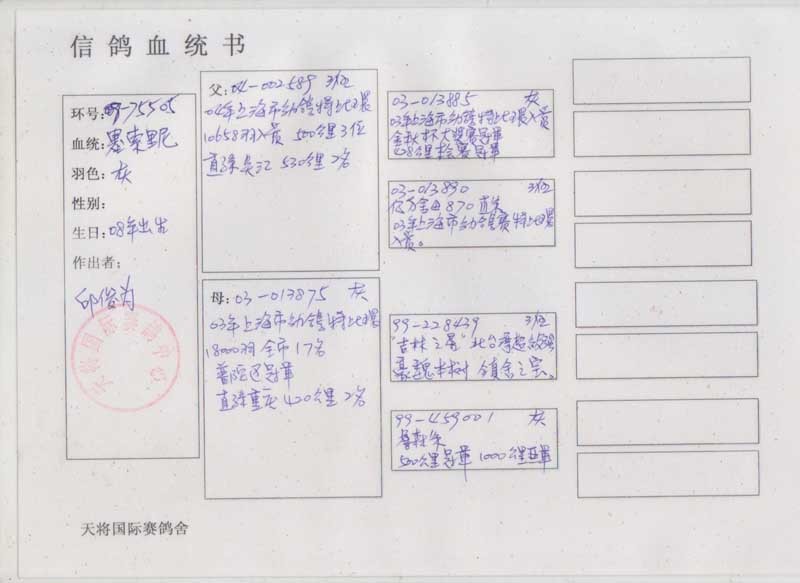 信鸽血统书
环号:09-75505
血统:塞索里尼
羽色:灰
性别:
生日:08年出生
作出者:
邱俊为
父:04-002589 3位
04年上海市幼鸽特比环
10658羽入赏 500公里3位
直绿吴江 530公里 2名
母:03-013875 灰
03年上海市幼鸽特比环
18000羽 全市17名
普陀区冠军
直绿重庆 420公里 2名
03-013885 灰
03年上海市幼鸽特比环入赏
金秋杯大奖赛冠军
03-013890 3位
870 直朱
03年上海市幼鸽赛特比环
入赏。
99-228439 3位
"吉林之星"
之宗。
99-459001 灰
500公里冠军 1000公里亚军
天将国际赛鸽舍